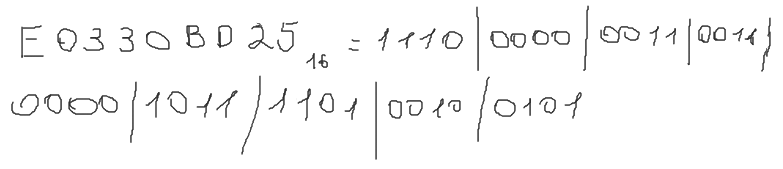 E0330BD25₁₆ = 1110|0000|0011|0011|
0000|1011/1101|0010/0101